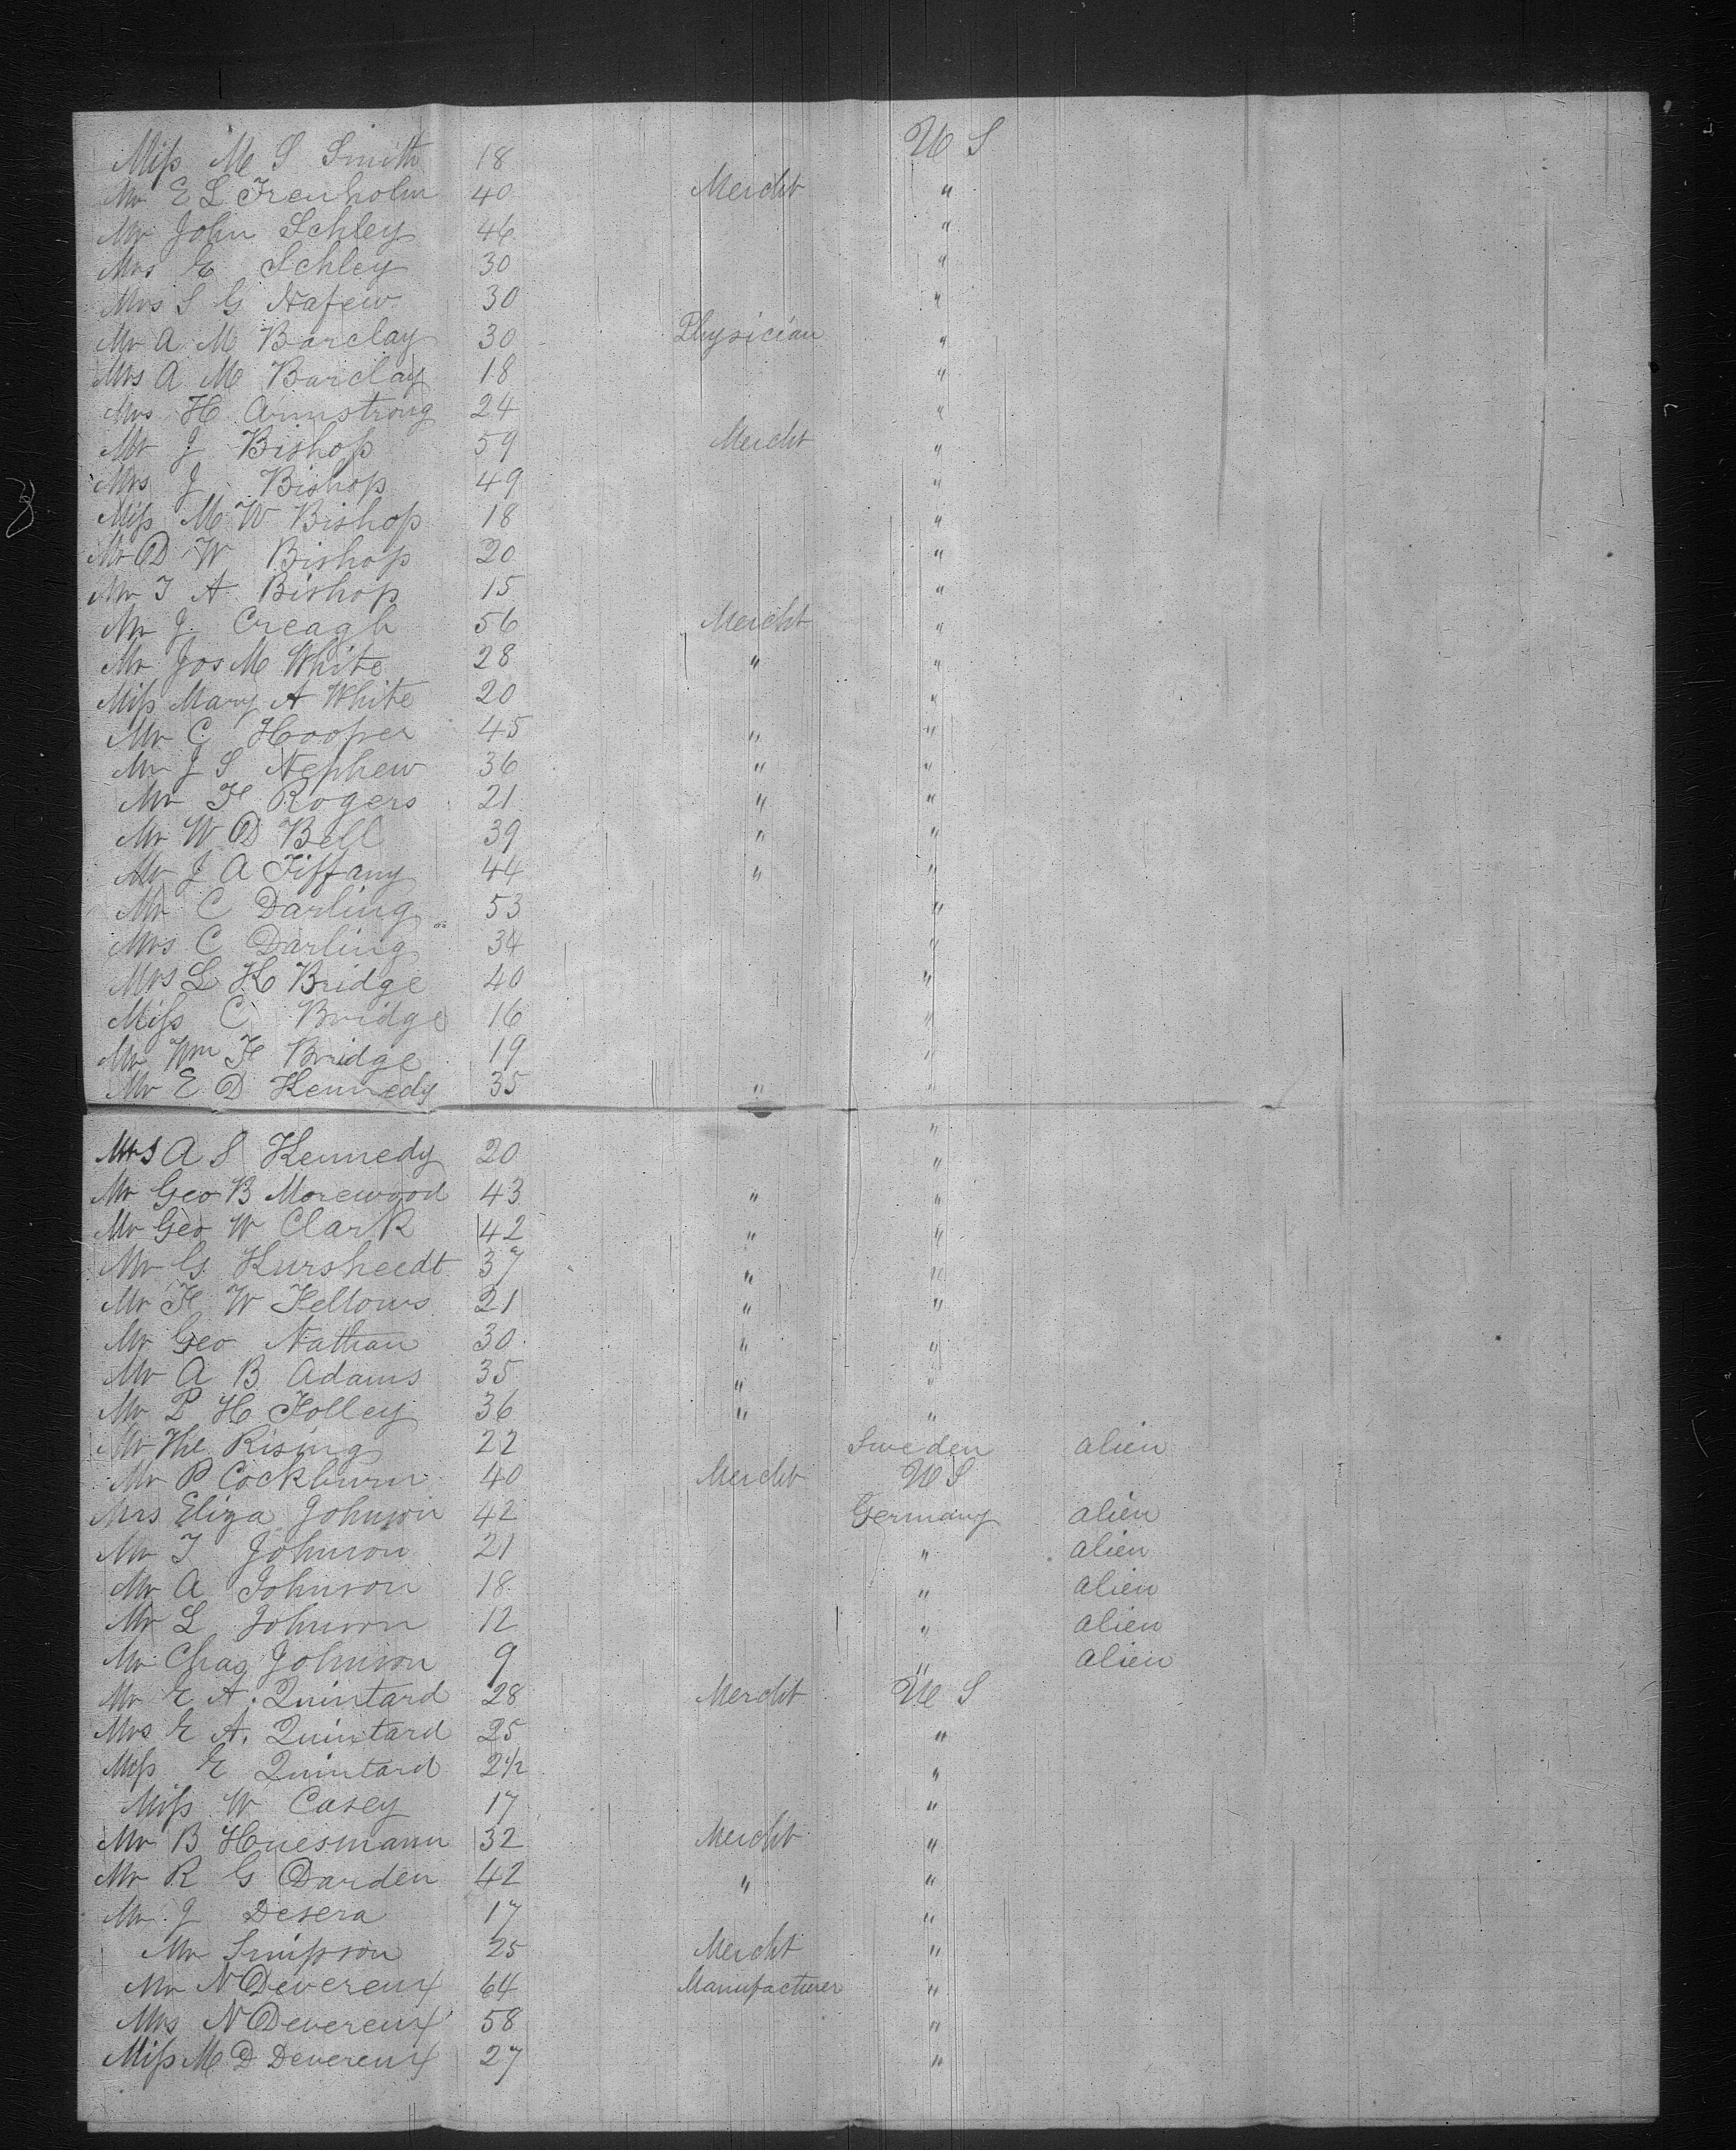 Miss M S Smith 18 U S
Mr E L Trenholm 40 Mercht "
Mr John Schley 46 "
Mrs E Schley 30 "
Mrs S G Nafew 30 "
Mr A M Barclay 30 Physician "
Mrs A M Barclay 18 "
Mrs H Armstrong 24 "
Mr J Bishop 59 Mercht "
Mrs J Bishop 49 "
Miss M W Bishop 18 "
Mr D W Bishop 20 "
Mr T A Bishop 15 "
Mr J Creagh 56 Mercht "
Mr Jos M White 28 " "
Miss Mary A White 20 "
Mr C Hooper 45 " "
Mr J S Nephew 36 " "
Mr F Rogers 21 " "
Mr W D Bell 39 " "
Mr J A Tiffany 44 " "
Mr C Darling 53 "
Mrs C Darling 34 "
Mrs L H Bridge 40 "
Miss C Bridge 16 "
Mr Wm F Bridge 19 "
Mr E D Kennedy 35 " "
"
Mrs A S Kennedy 20 "
Mr Geo B Morewood 43 " "
Mr Geo W Clark 42 " "
Mr G Kursheedt 37 " "
Mr F W Fellows 21 " "
Mr Geo Nathan 30 " "
Mr A B Adams 35 " "
Mr P H Folley 36 " "
Mr Rising 22 Sweden alien
Mr P Cockburn 40 Mercht U S
Mrs Eliza Johnson 42 Germany alien
Mr T Johnson 21 " alien
Mr A Johnson 18 " alien
Mr L Johnson 12 " alien
Mr Chas Johnson 9 " alien
Mr E A. Quintard 28 Mercht U S
Mrs E A. Quintard 25 "
Miss E Quintard 2½ "
Miss W Casey 17 "
Mr B Huesmann 32 Mercht "
Mr R G Darden 42 " "
Mr J Desera 17 "
Mr Simpson 25 Mercht "
Mr N Devereux 64 Manufacturer "
Mrs N Devereux 58 "
Miss M D Devereux 27 "